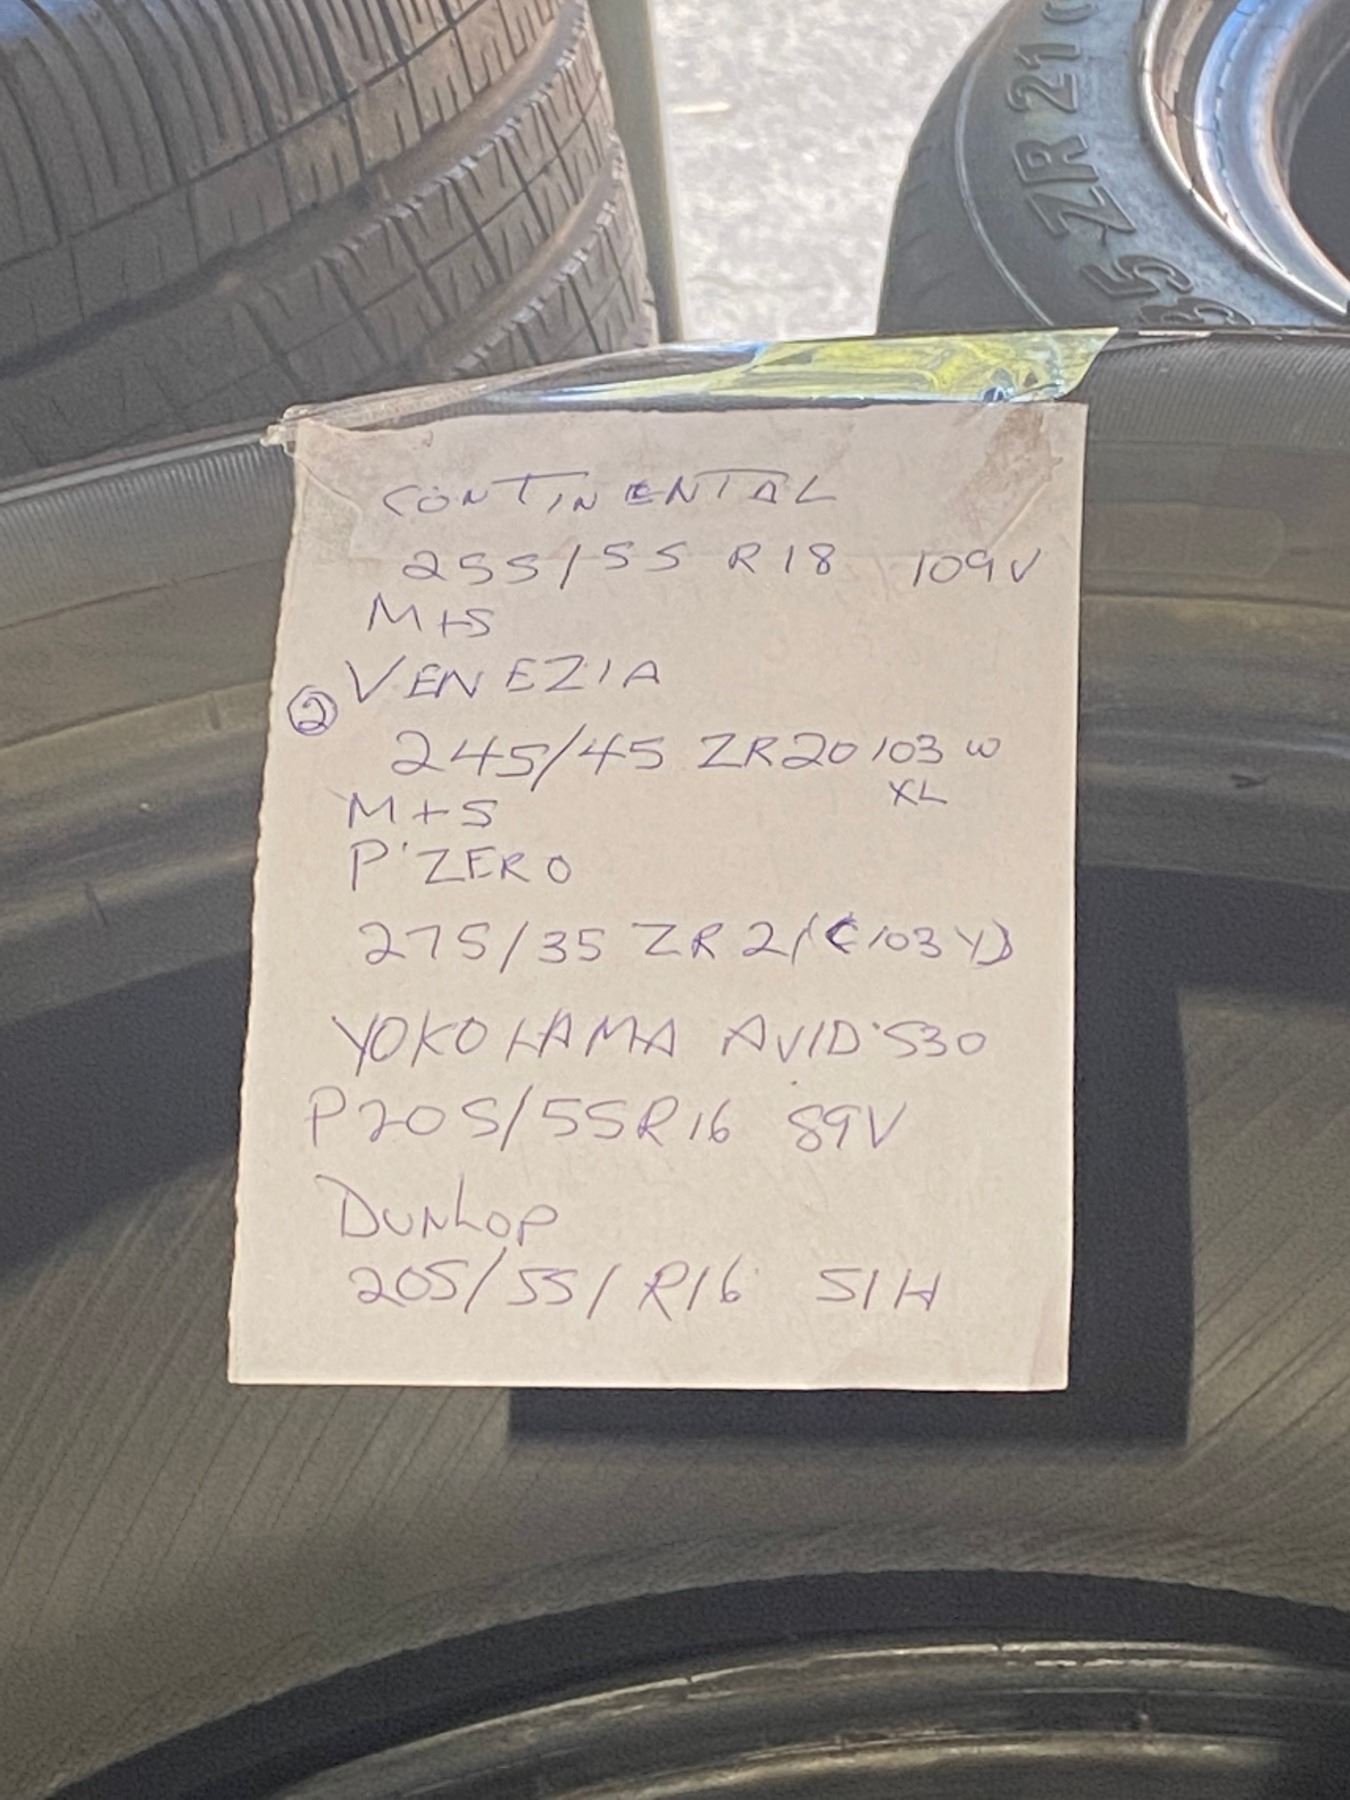 ZR 21
35
CONTINENTAL
255/55 R18 109V
M+S
② VENEZIA
245/45 ZR20 103W
XL
M+S
P'ZERO
275/35 ZR21(103Y)
YOKOHAMA AVID·S30
P205/55R16 89V
DUNLOP
205/55/R16 51H